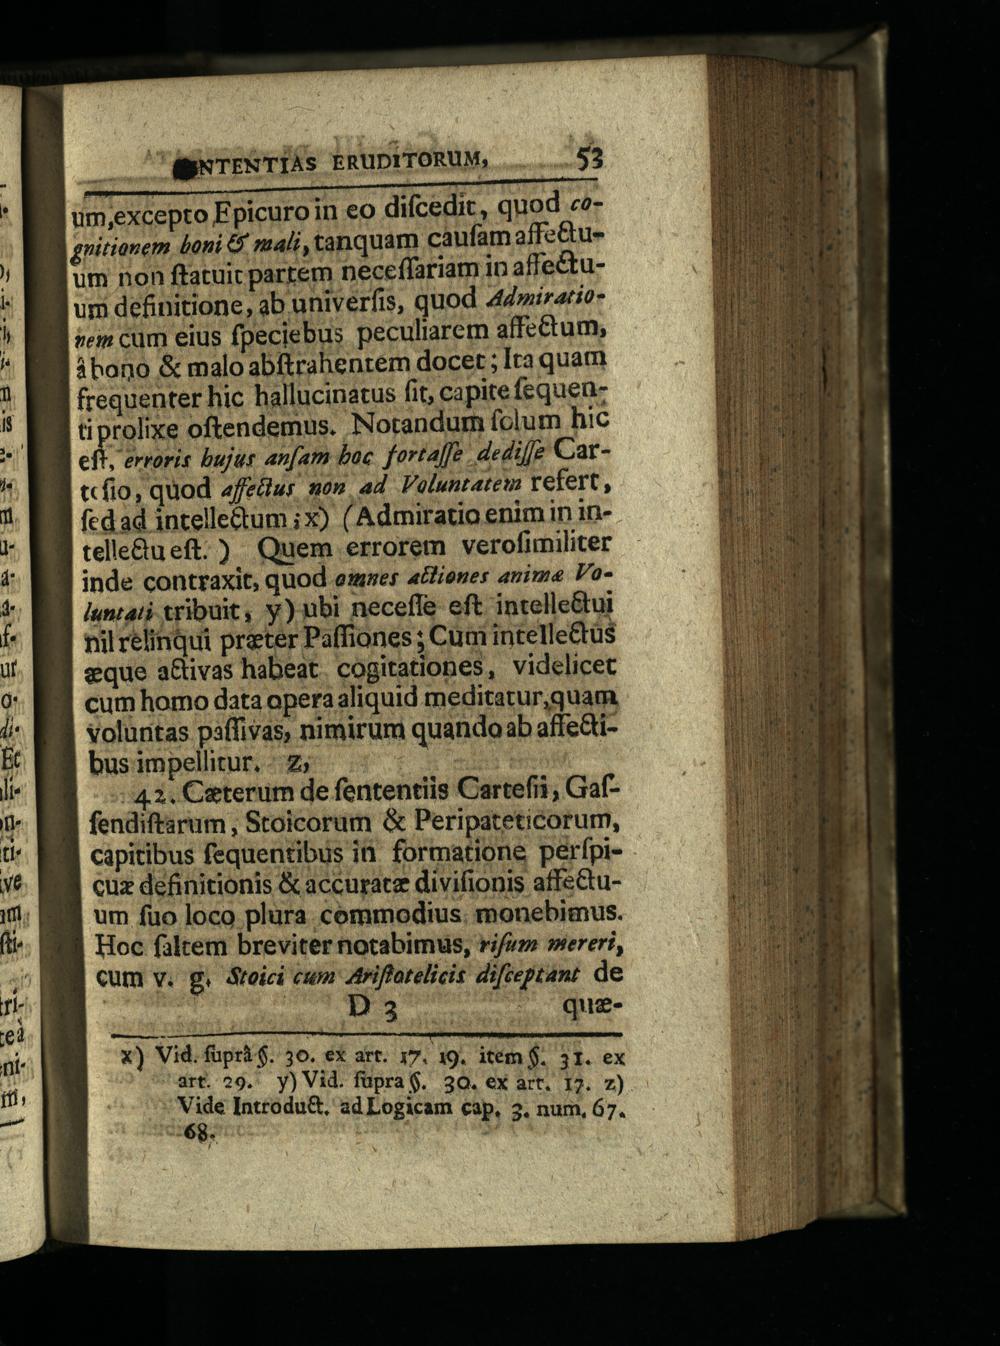 NTENTIAS ERUDITORUM, 53
um, excepto Epicuro in eo diſcedit, quod co-
gnitionem boni & mali, tanquam cauſam affectu-
um non ſtatuit partem neceſſariam in affectu-
um definitione, ab univerſis, quod Admiratio-
nem cum eius ſpeciebus peculiarem affectum,
â bono & malo abſtrahentem docet; Ita quam
frequenter hic hallucinatus ſit, capite ſequen-
ti prolixe oſtendemus. Notandum ſolum hic
eſt, erroris hujus anſam hoc fortaſſe dediſſe Car-
teſio, quod affectus non ad Voluntatem refert,
ſed ad intellectum; x) (Admiratio enim in in-
tellectu eſt. ) Quem errorem veroſimiliter
inde contraxit, quod omnes actiones animæ Vo-
luntati tribuit, y) ubi neceſſe eſt intellectui
nil relinqui præter Paſſiones; Cum intellectus
æque activas habeat cogitationes, videlicet
cum homo data opera aliquid meditatur, quam
voluntas paſſivas, nimirum quando ab affecti-
bus impellitur. z,
42. Cæterum de ſententiis Carteſii, Gaſ-
ſendiſtarum, Stoicorum & Peripateticorum,
capitibus ſequentibus in formatione perſpi-
cuæ definitionis & accuratæ diviſionis affectu-
um ſuo loco plura commodius monebimus.
Hoc ſaltem breviter notabimus, riſum mereri,
cum v. g. Stoici cum Ariſtotelicis diſceptant de
D 3 quæ-
x) Vid. ſuprâ §. 30. ex art. 17. 19. item §. 31. ex
art. 29. y) Vid. ſupra §. 30. ex art. 17. z)
Vide Introduct. ad Logicam cap. 3. num. 67.
68.